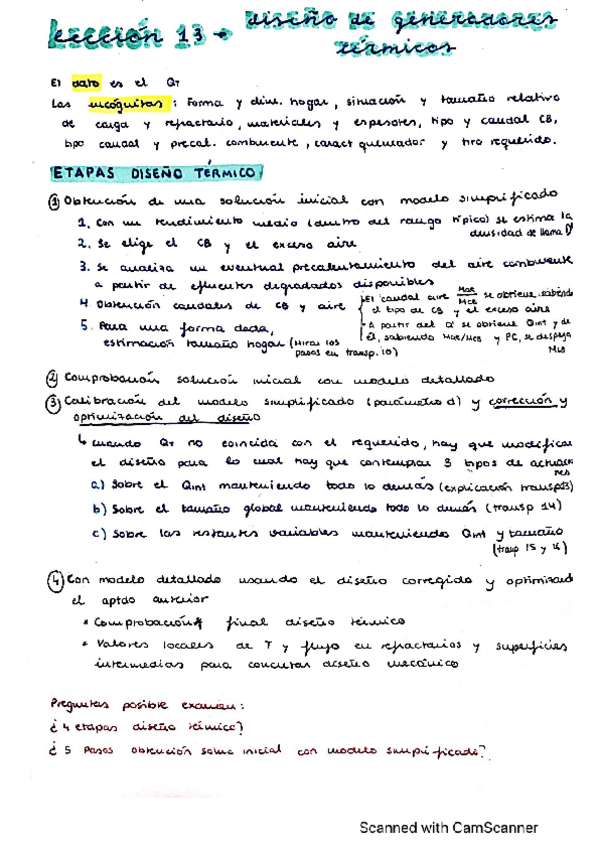 Lección 13 → diseño de generadores
térmicos
El dato es el QT
Las incógnitas: Forma y dim. hogar, situación y tamaño relativo
de carga y refractario, materiales y espesores, tipo y caudal CB,
tipo caudal y precal. comburente, caract quemador y tiro requerido.
ETAPAS DISEÑO TÉRMICO
① Obtención de una solución inicial con modelo simplificado
1. Con un rendimiento medio (dentro del rango típico) se estima la
densidad de llama D'
2. Se elige el CB y el exceso aire
3. Se analiza un eventual precalentamiento del aire comburente
a partir de efluentes degradados disponibles
4. Obtención caudales de CB y aire
El caudal aire MAR/MCB se obtiene sabiendo
el tipo de CB y el exceso aire
A partir del se obtiene Qint y de
él, sabiendo MAR/MCB y PC, se despeja
MCB
5. Para una forma dada,
estimación tamaño hogar (Mirar los
pasos en transp. 10)
② Comprobación solución inicial con modelo detallado
③ Calibración del modelo simplificado (parámetro d) y corrección y
optimización del diseño
↳ cuando QT no coincida con el requerido, hay que modificar
el diseño para lo cual hay que contemplar 3 tipos de actuaciones
a) Sobre el Qint manteniendo todo lo demás (explicación transp13)
b) Sobre el tamaño global manteniendo todo lo demás (transp 14)
c) Sobre las restantes variables manteniendo Qint y tamaño
(transp 15 y 16)
④ Con modelo detallado usando el diseño corregido y optimizado
el aptdo anterior
* Comprobación final diseño térmico
* Valores locales de T y flujo en refractarios y superficies
intermedias para concretar diseño mecánico
Preguntas posible examen:
¿4 etapas diseño térmico?
¿5 Pasos obtención soluc inicial con modelo simplificado?
Scanned with CamScanner